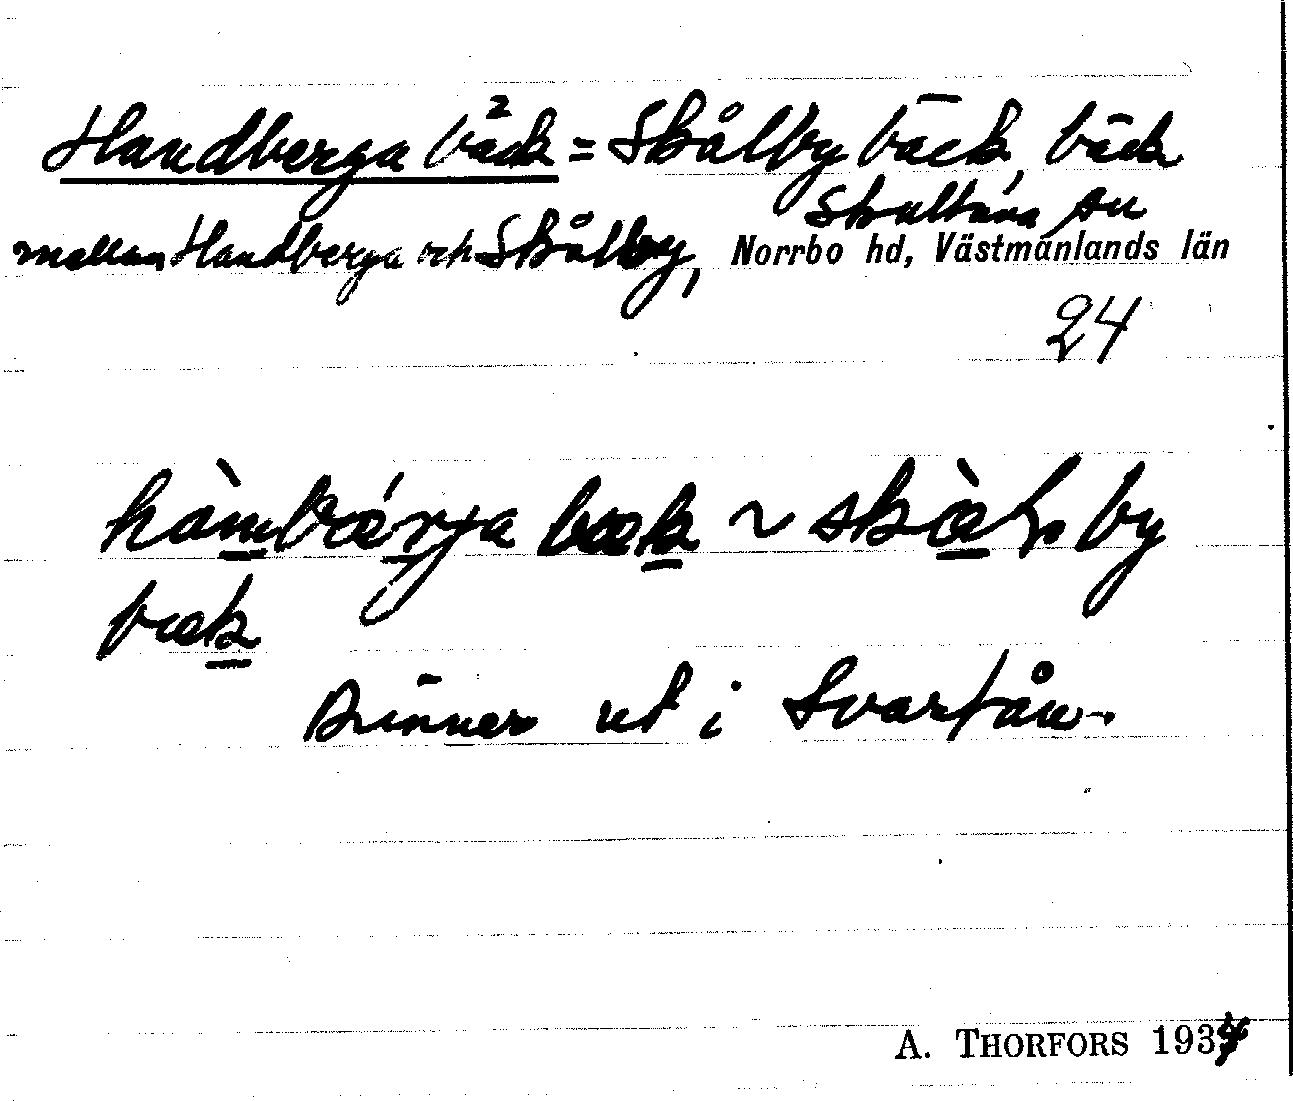 Handberga bäck = Skålby bäck, bäck
Skultuna sn
mellan Handberga och Skålby, Norrbo hd, Västmanlands län
24
hàmbǽrja bæk ~ skàlby
bæk
Rinner ut i Svartån.
A. THORFORS 1934